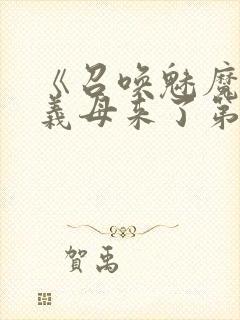 《召唤魅魔
義母来了第
賀禹